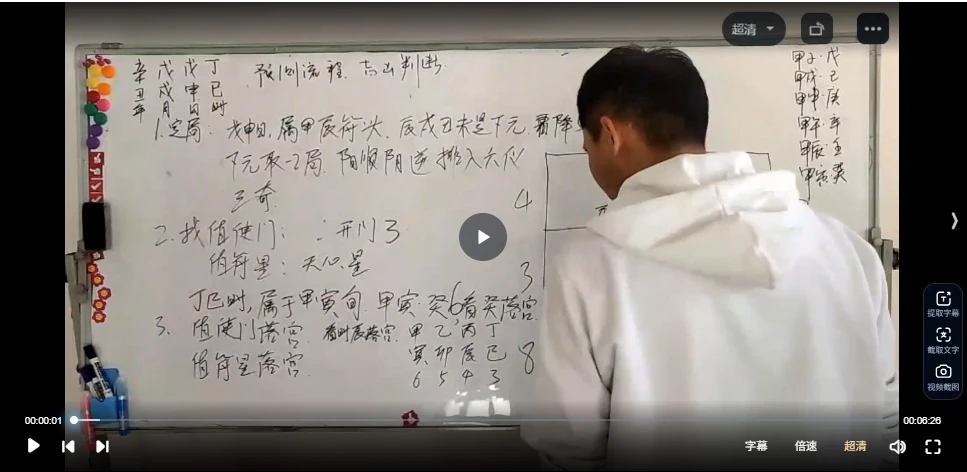 超清
辛 戊 戊 丁
丑 戌 申 巳
年 月 日 时
预测流程
判断
甲子 戊
甲戌 己
甲申 庚
甲午 辛
甲辰 壬
甲寅 癸
1.定局: 戊申日,属甲辰符头.辰戌丑未是下元.霜降
下元取二局.阳顺阴逆排入六仪
三奇
4
2.找值使门: 开门
值符星:天心星
3
丁巳时,属于甲寅旬.甲寅 癸 看癸落宫.
6
3. 值使门落宫 看时辰落宫. 甲 乙 丙 丁
值符星落宫. 寅 卯 辰 巳
8
6 5 4 3
提取字幕
截取文字
视频截图
00:00:01
00:06:26
字幕 倍速 超清